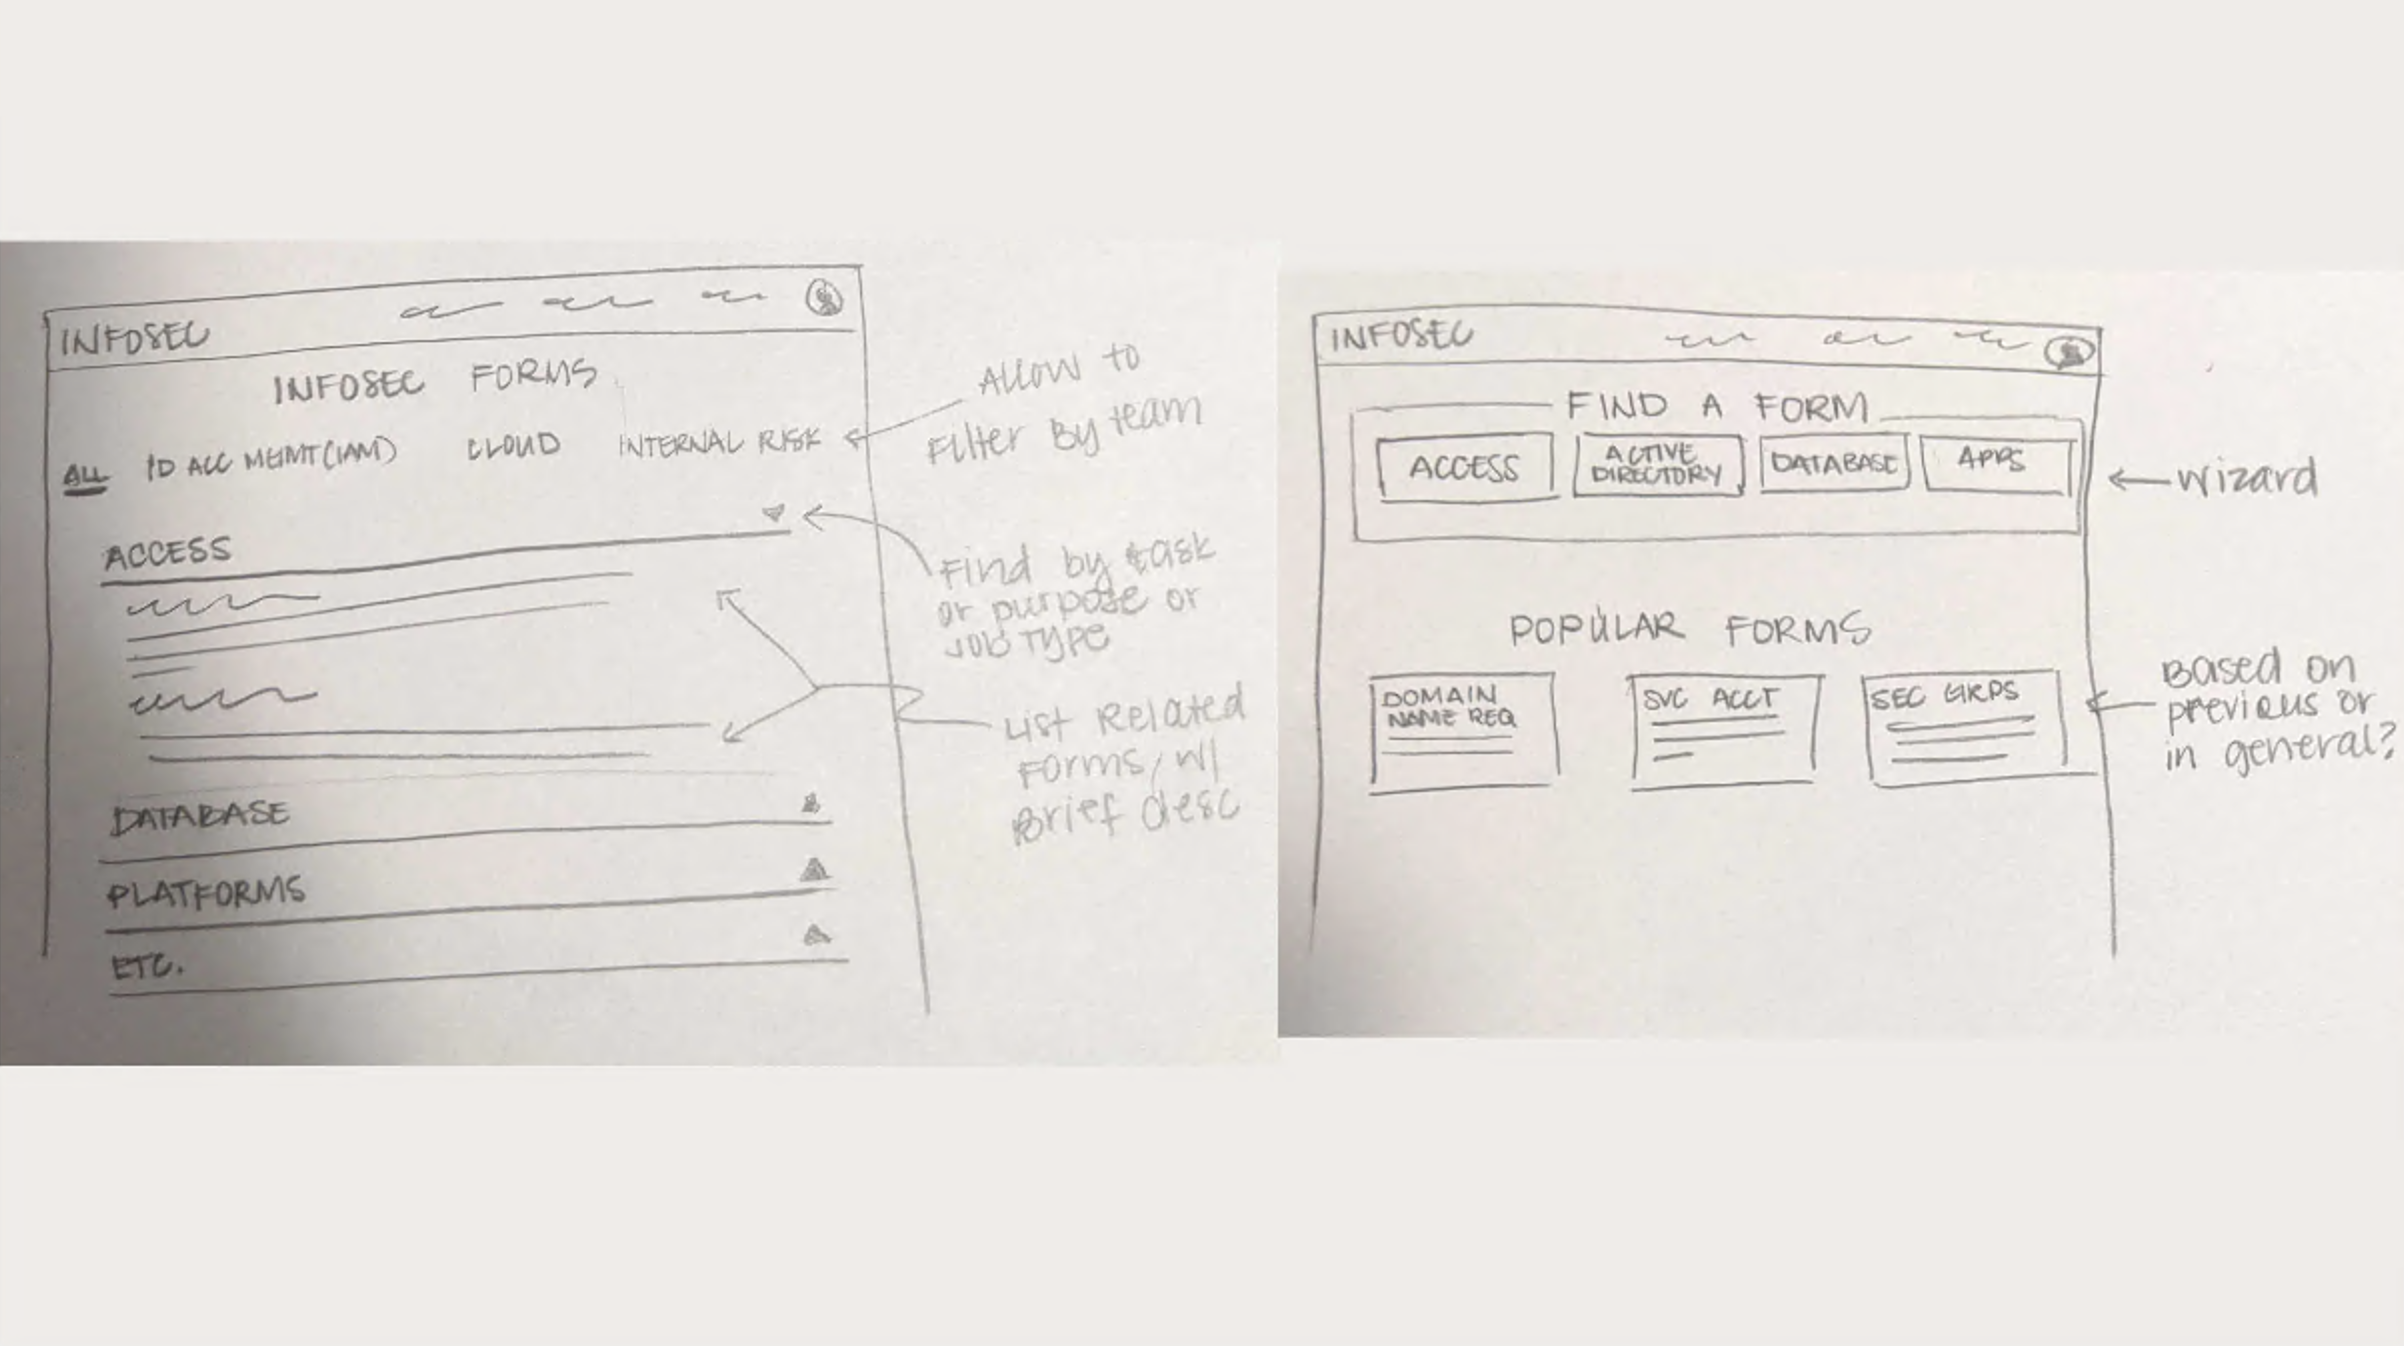 INFOSEC
INFOSEC FORMS
ALL ID ACC MGMT (IAM) CLOUD INTERNAL RISK
ACCESS
DATABASE
PLATFORMS
ETC.
ALLOW to
Filter By team
Find by task
or purpose or
JOB TYPE
LIST Related
Forms, w/
Brief desc
INFOSEC
FIND A FORM
ACCESS
ACTIVE
DIRECTORY
DATABASE
APPS
Wizard
POPULAR FORMS
DOMAIN
NAME REQ
SVC ACCT
SEC GRPS
Based on
previous or
in general?